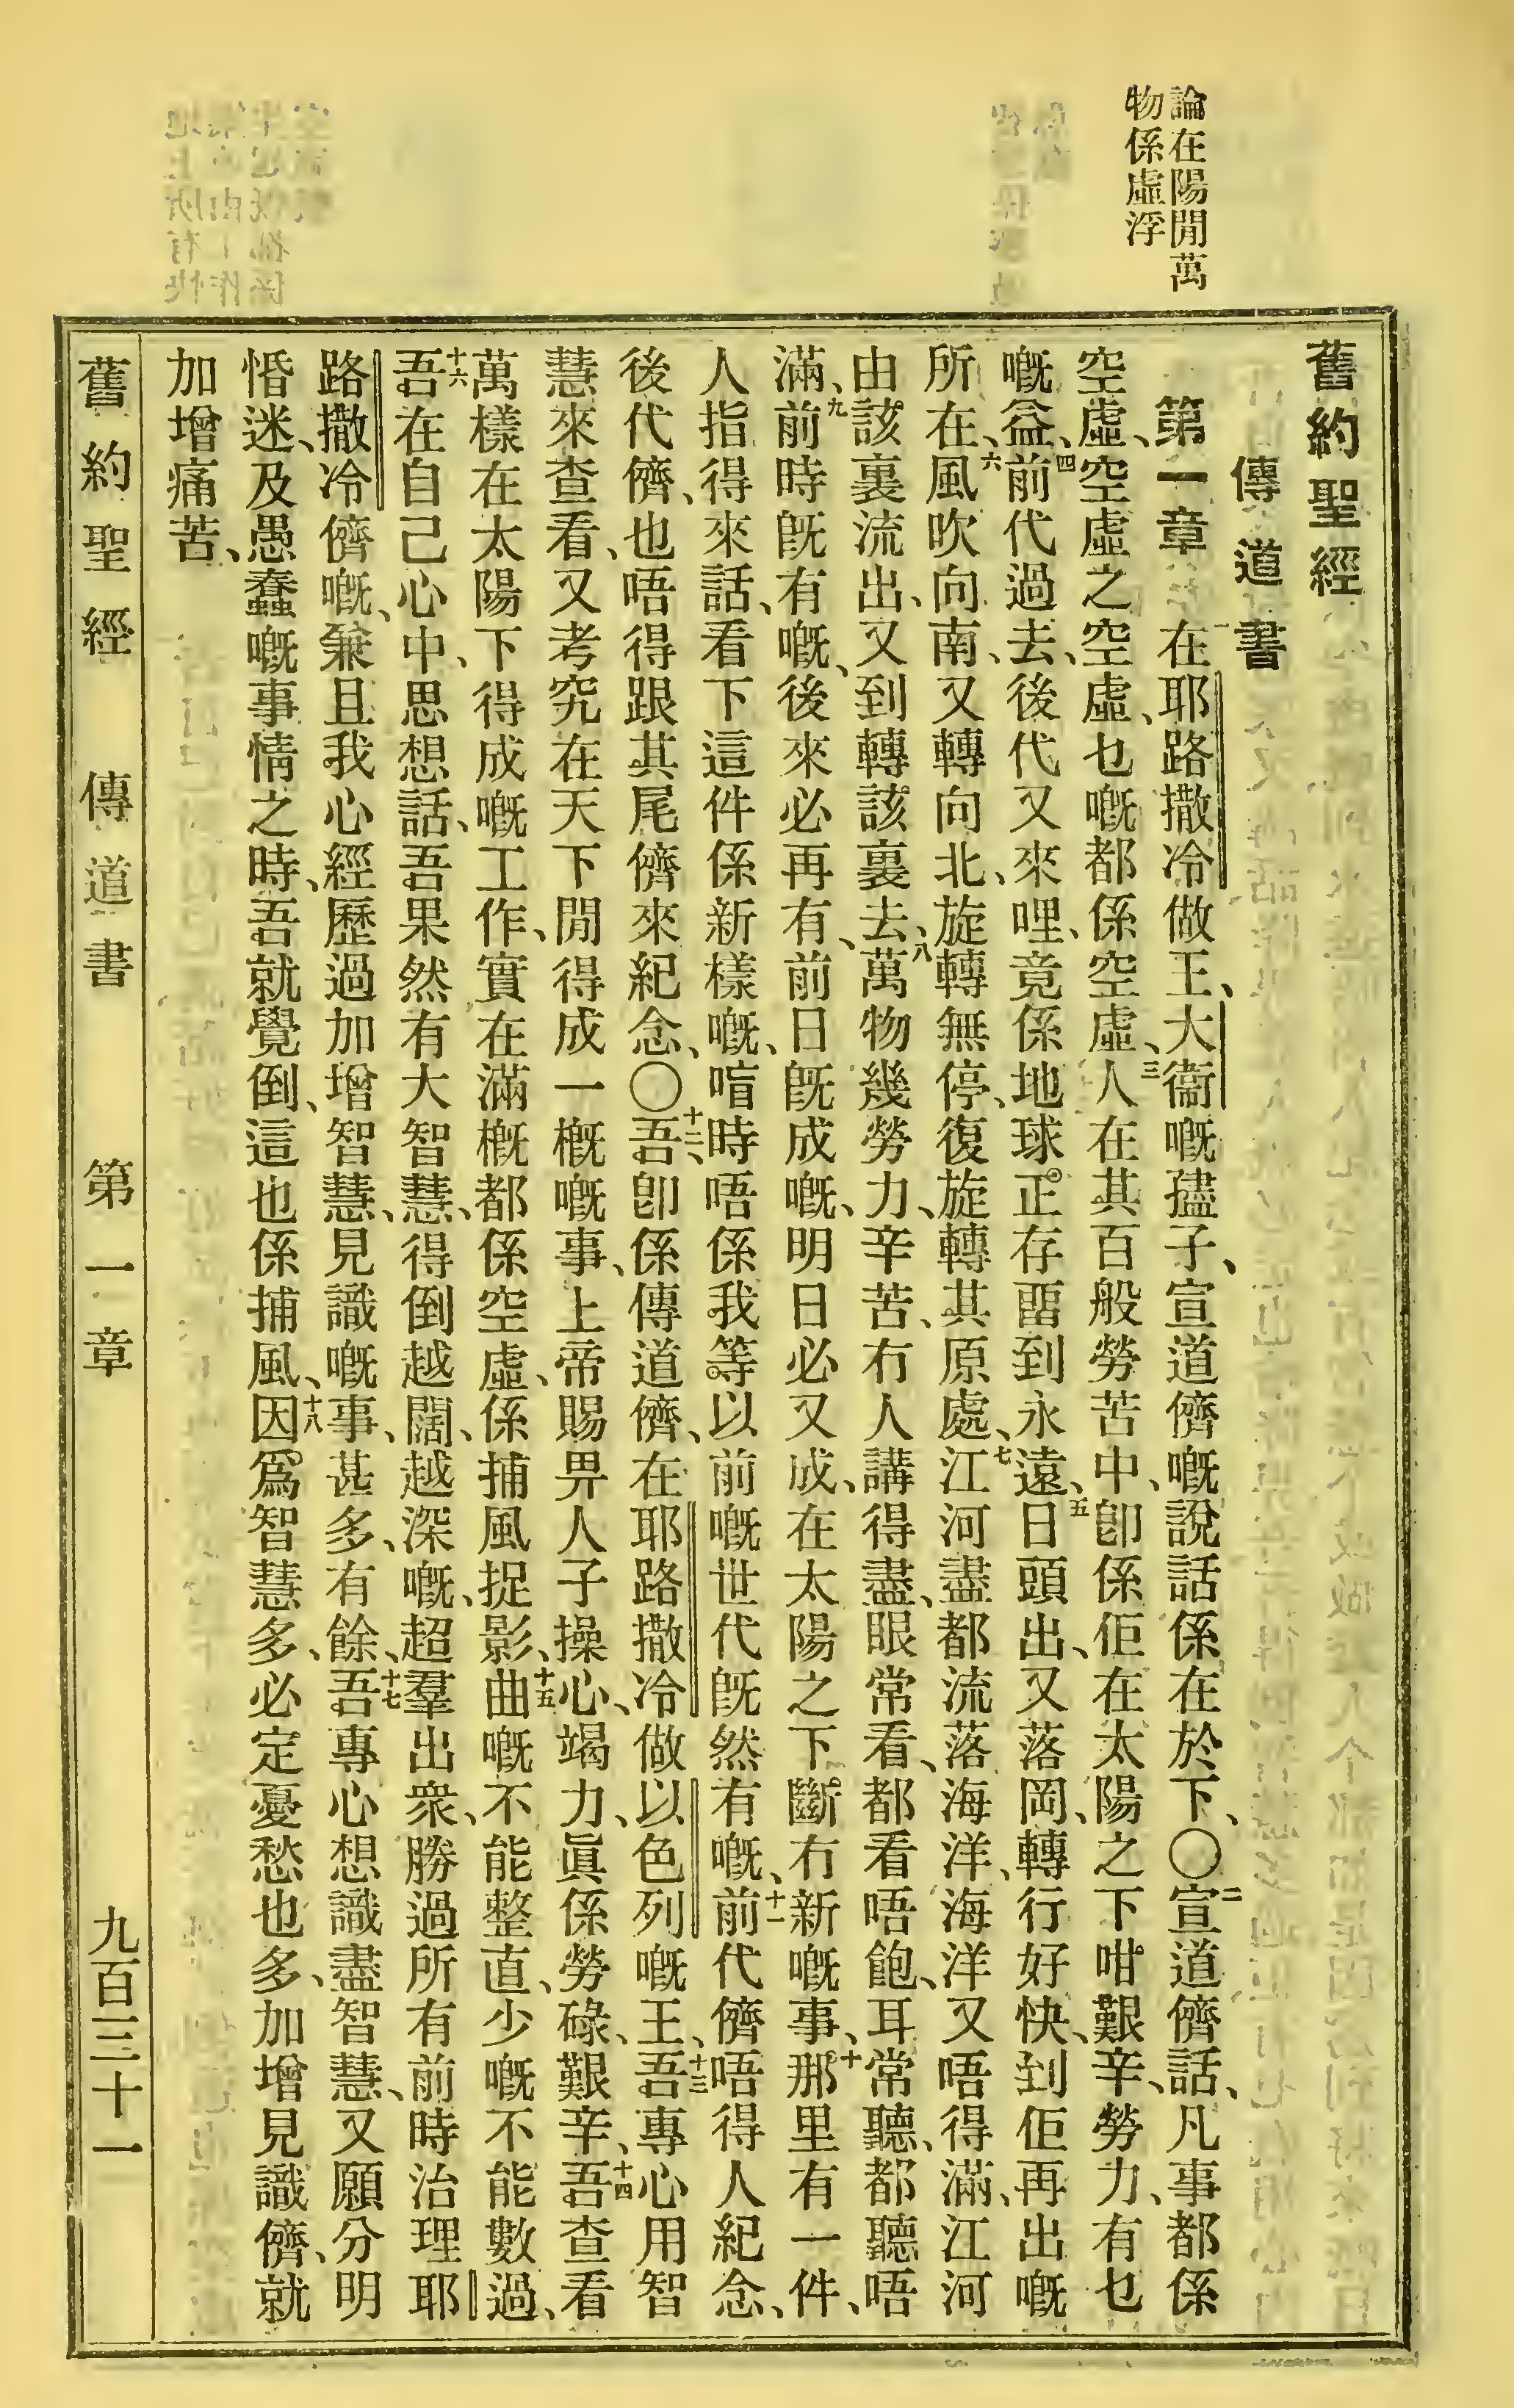 論在陽閒萬
物係虛浮
舊約聖經
傳道書
第一章 一在耶路撒冷做王、大衞嘅孻子、宣道儕嘅說話係在於下、〇二宣道儕話、凡事都係
空虛、空虛之空虛、乜嘅都係空虛、三人在其百般勞苦中、卽係佢在太陽之下咁艱辛、勞力、有乜
嘅益、四前代過去、後代又來哩、竟係地球正存畱到永遠、五日頭出、又落岡、轉行好快、到佢再出嘅
所在、六風吹向南、又轉向北、旋轉無停、復旋轉其原處、七江河盡都流落海洋、海洋又唔得滿、江河
由該裏流出、又到轉該裏去、八萬物幾勞力、辛苦、冇人講得盡、眼常看、都看唔飽、耳常聽、都聽唔
滿、九前時旣有嘅、後來必再有、前日旣成嘅、明日必又成、在太陽之下斷冇新嘅事、十那里有一件、
人指得來話、看下這件係新樣嘅、喑時唔係我等以前嘅世代旣然有嘅、十一前代儕唔得人紀念、
後代儕、也唔得跟其尾儕來紀念、〇十二吾、卽係傳道儕、在耶路撒冷做以色列嘅王、十三吾專心用智
慧來查看、又考究在天下閒得成一概嘅事、上帝賜畀人子操心、竭力、眞係勞碌、艱辛、十四吾查看
萬樣在太陽下得成嘅工作、實在滿概都係空虛、係捕風捉影、十五曲嘅不能整直、少嘅不能數過、
十六吾在自己心中、思想話、吾果然有大智慧、得倒越闊、越深嘅、超羣出衆、勝過所有前時治理耶
路撒冷儕嘅、兼且我心經歷過加增智慧、見識嘅事、甚多、有餘、十七吾專心想識盡智慧、又願分明
惛迷、及愚蠢嘅事情之時、吾就覺倒、這也係捕風、十八因爲智慧多、必定憂愁也多、加增見識儕、就
加增痛苦、
舊約聖經 傳道書 第一章 九百三十一